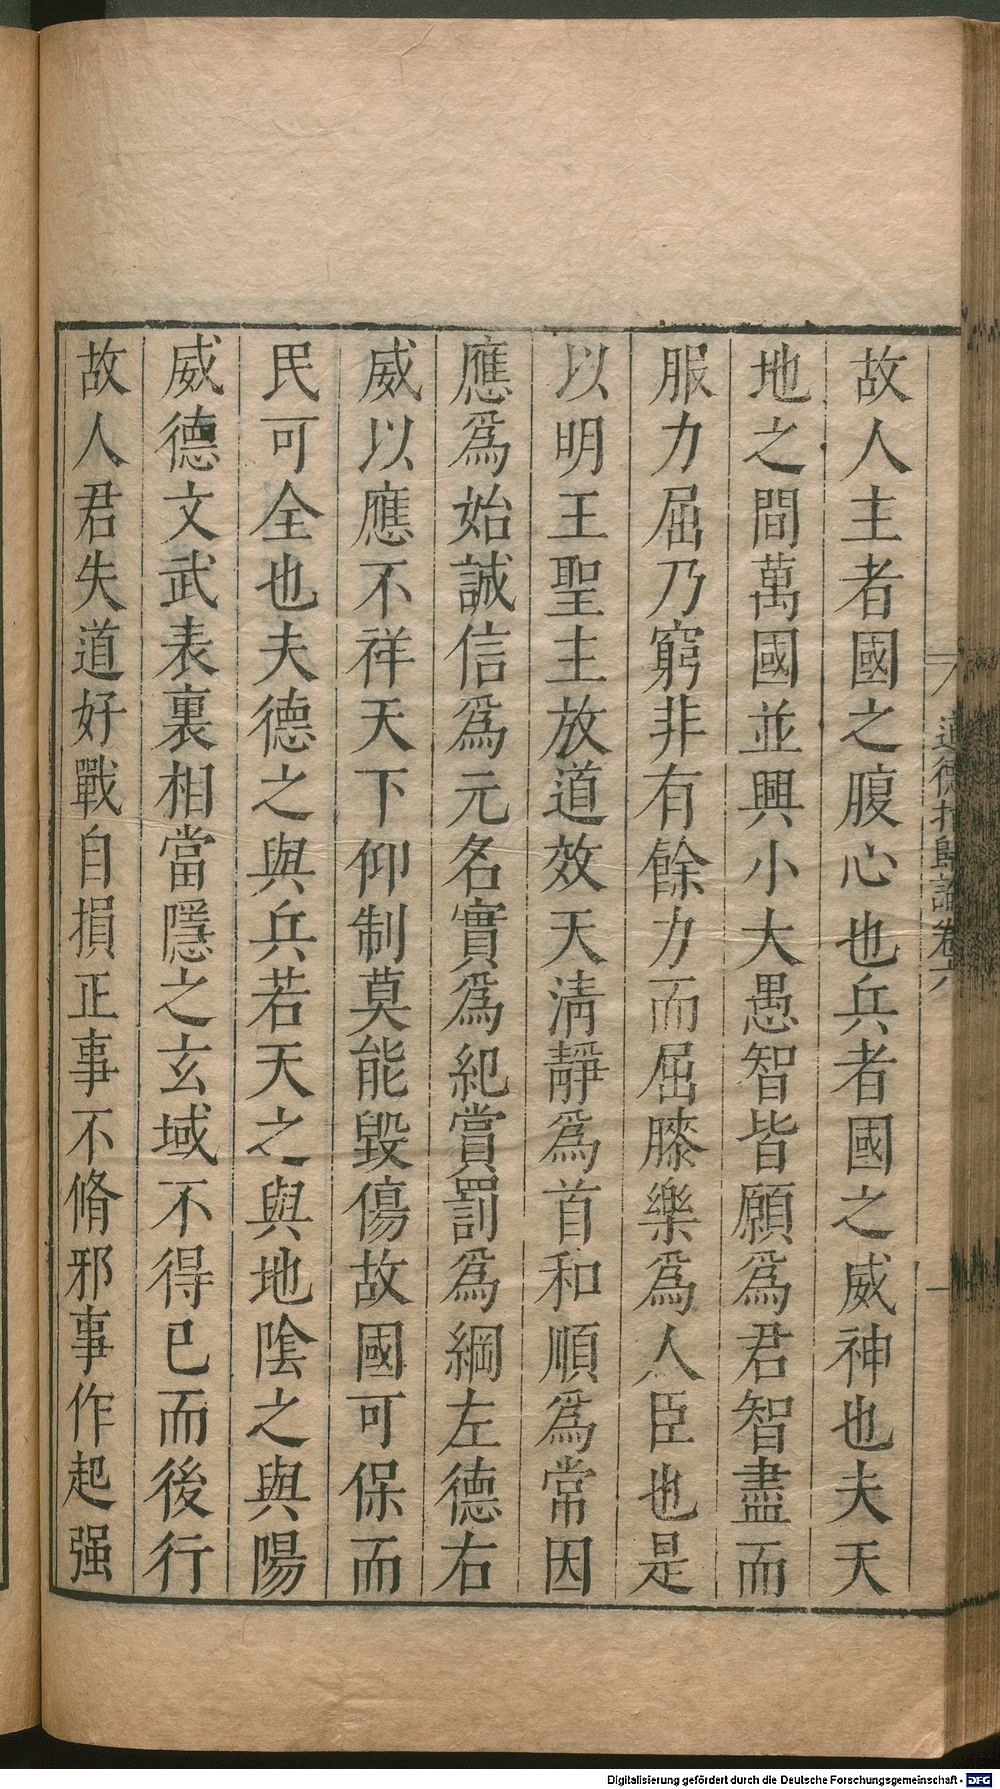 道德指歸論卷六
故人主者國之腹心也兵者國之威神也夫天
地之間萬國並興小大愚智皆願爲君智盡而
服力屈乃窮非有餘力而屈膝樂爲人臣也是
以明王聖主放道效天淸靜爲首和順爲常因
應爲始誠信爲元名實爲紀賞罰爲綱左德右
威以應不祥天下仰制莫能毀傷故國可保而
民可全也夫德之與兵若天之與地陰之與陽
威德文武表裏相當隱之玄域不得已而後行
故人君失道好戰自損正事不脩邪事作起强
Digitalisierung gefördert durch die Deutsche Forschungsgemeinschaft - DFG